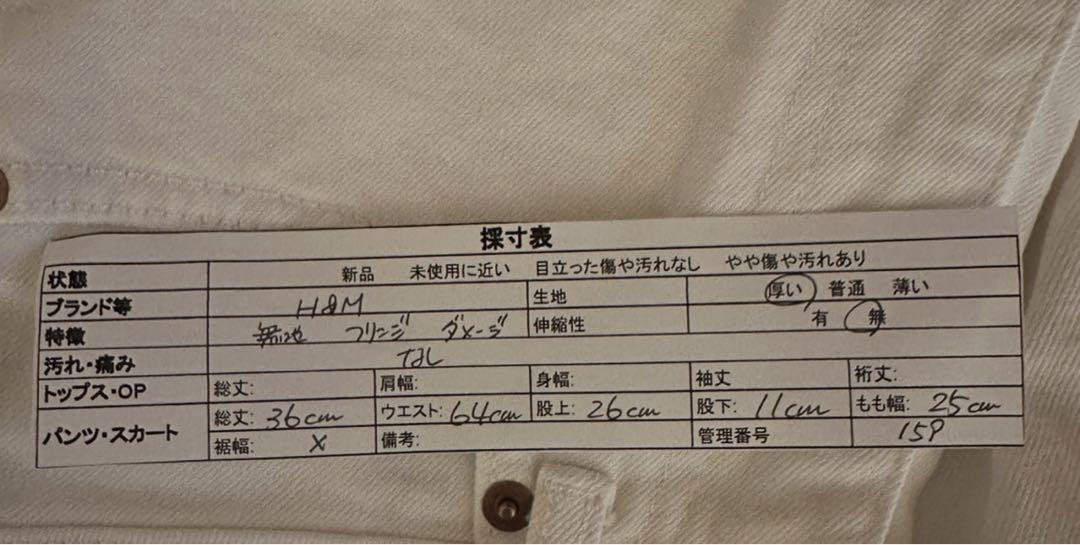 採寸表
状態 新品 未使用に近い 目立った傷や汚れなし やや傷や汚れあり
ブランド等 H&M 生地 厚い 普通 薄い
特徴 無地 フリンジ ダメージ 伸縮性 有 無
汚れ・痛み なし
トップス・OP 総丈: 肩幅: 身幅: 袖丈 裄丈:
パンツ・スカート 総丈: 36cm ウエスト: 64cm 股上: 26cm 股下: 11cm もも幅: 25cm
裾幅: X 備考: 管理番号 159